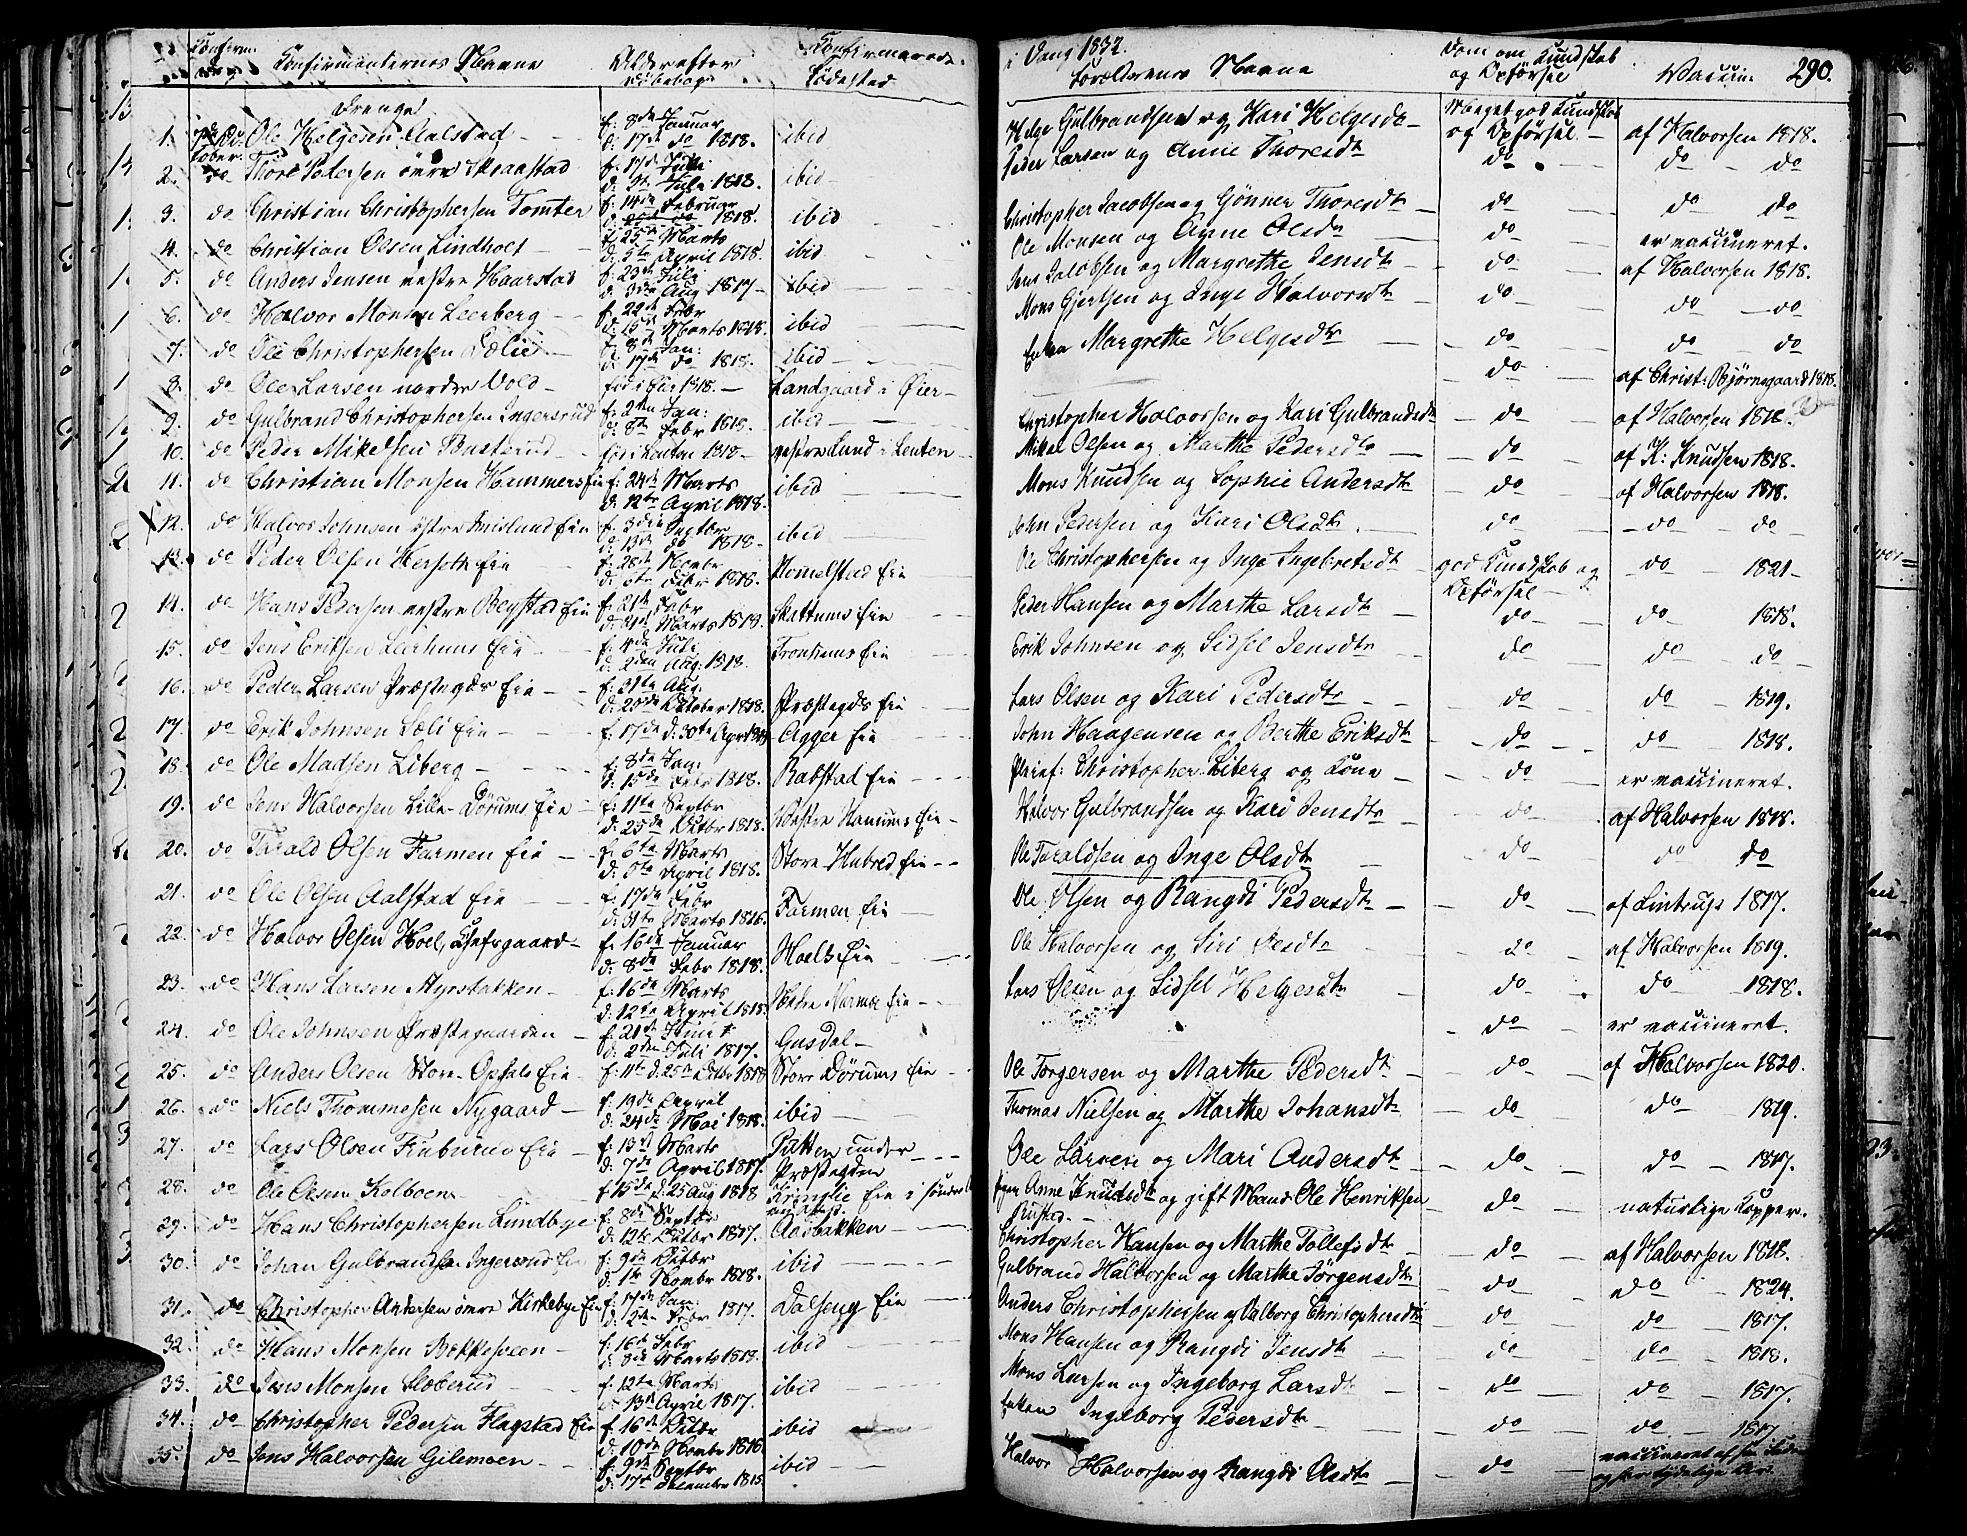 Confirmanternes Navne
Alder efter
Daabsdage
Fødested
i Vang 1832.
Forældrenes Navne
Dom om Kundskab
og Opførsel
Vaccin:
290.
Drenge
1. Ole Helgesen Aalstad f: 8de Januar d: 17de do 1818. ibid Helge Gulbrandsen og Kari Helgesdr Meget god Kundskab og Opførsel af Halvorsen 1818.
2. do Thore Pedersen øvre Skraastad d: 9de Juli 1818. ibid Peder Larsen og Anne Thoresdr do do do
3. do Christian Christophersen Tomter f: 14de Februar 1818. ibid Christopher Jacobsen og Gönner Thoresdr do do do
4. do Christian Olsen Lindholt f: 25de Marts d: 5te April 1818. ibid Ole Monsen og Anne Olsdr do er vaccineret.
5. do Anders Jensen vestre Haarstad f: 23de Juli d: 3de Aug 1817 ibid Jens Jacobsen og Margrethe Jensdr do af Halvorsen 1818.
6. do Halvor Monsen Leerberg f: 22de Febr d: 15de Marts 1818. ibid Mons Giertsen og Inge Halvorsdr do do do
7. do Ole Christophersen Lælie f: 8de Jan: d: 17de do 1818. ibid Enken Margrethe Helgesdr do do do
8. do Ole Larsen nordre Vold 1818. Landgaard i Øier do af Christ: Bjørnsgaard 1818.
9. do Gulbrand Christophersen Ingersrud f: 2den Jan: d: 8de Febr 1818. ibid Christopher Halvorsen og Kari Gulbrandsdr do af Halvorsen 1818.
10. do Peder Mikelsen Busterud 1818 vestre Lund i Leuten Mikel Olsen og Marthe Pedersdr do af K: Knudsen 1818.
11. do Christian Monsen Hammers Eie f: 24de Marts d: 12te April 1818. ibid Mons Knudsen og Sophie Andersdr do af Halvorsen 1818.
12. do Halvor Johnsen Eie f: 3die Septbr d: 13de do 1818. ibid John Pedersen og Kari Olsdr. do do do
13. do Peder Olsen Hersoth Eie f: 28de Novbr 1818. Homelstad Eie Ole Christophersen og Inge Ingebretsdr god Kundskab og Opførsel do 1821
14. do Hans Pedersen vestre Beystad Eie f: 21de Febr d: 21de Marts 1818. Skattums Eie Peder Hansen og Marthe Larsdr do do 1818.
15. do Jens Eriksen Leerhuus Eie f: 4de Juli d: 2den Aug. 1818. Fronhuus Eie Erik Johnsen og Sidsel Jensdr do do do
16. do Peder Larsen Præstegds Eie f: 31te Aug. d: 20de October 1818. Præstegds Eie Lars Olsen og Kari Pedersdr do do 1819.
17. do Erik Johnsen Læli Eie f: 17de d: 30te April Agger Eie John Haagensen og Berthe Eriksdr do do 1818.
18. do Ole Madsen Liberg f: 8de Jan d: 15de Febr 1818. Rabstad Eie Christopher Liberg og Kone do er vaccineret.
19. do Jens Halvorsen Lille-Dørums Eie f: 11te Septbr d: 25de Octbr 1818. Vestre Hanums Eie Halvor Gulbrandsen og Kari Jensdr do af Halvorsen 1818.
20. do Tarald Olsen Farmen Eie f: 6te Marts d: 5te April 1818. Store Hubred Eie Ole Taraldsen og Inge Olsdr do do do
21. do Ole Olsen Aalstad Eie f: 17de Febr d: 31te Marts 1816. Farmen Eie Ole Olsen og Rangdi Pedersdr do af Lintrups 1817.
22. do Halvor Olsen Hoel f: 16de Januar d: 8de Febr 1818. Hoels Eie Ole Halvorsen og Siri do af Halvorsen 1819.
23. do Hans Larsen Myrbakken f: 16de Marts d: 12te April 1818. Eie Lars Olsen og Sidsel Helgesdr do do 1818.
24. do Ole Johnsen Præstegaarden f: 21de Juni d: 2den Juli 1817. Gusdal do er vaccineret.
25. do Anders Olsen Store-Opsals Eie f: 11te d: 25de Octbr Store Dørums Eie Ole Torgersen og Marthe Pedersdr do af Halvorsen 1820.
26. do Niels Thommesen Nygaard f: 19de April d: 24de Mai 1818. ibid Thomas Nielsen og Marthe Johansdr do do 1819.
27. do Lars Olsen Finborud Eie f: 13de Marts d: 7de April 1817. Pladsen under Præstegden Ole Larsen og Mari Andersdr do do 1817.
28. do Ole Olsen Kolboen f 15de d: 25 Aug 1818 Kringlie Eie i Anne Knudsdr og gift Mand Ole Henriksen Rustad do naturlige Kopper.
29. do Hans Christophersen Lundbye f: 8de Septbr d: 12te Octbr 1817. Aasbakken Christopher Hansen og Marthe Tollefsdr do af Halvorsen 1818.
30. do Johan Gulbrandsen Ingersrud f: 9de Octbr d: 1te Novbr 1818. ibid Gulbrand Halvorsen og Marthe Jörgensdr do do 1824.
31. do Christopher Andersen øvre Kirkebye Eie f: 17de Jan: d: 12te Febr 1817. Dalseng Eie Anders Christophersen og Valborg Christophersdr do do 1817.
32. do Hans Monsen Bekkeveen f: 16de Febr d: 8de Marts 1818. ibid Mons Hansen og Rangdi Jensdr do do 1818.
33. do Jens Monsen Sloberud f: 12te Marts d: 13de April 1817. ibid Mons Larsen og Ingeborg Larsdr do do 1817.
34. do Christopher Pedersen Flagstad Eie f: 16de Octbr d: 10de Novbr 1816. ibid Enken Ingeborg Pedersdr do do 1817
35. do Jens Halvorsen Gilemoen f: 9de Septbr d: 17de December 1815 ibid Halvor Halvorsen og Rangdi Olsdr do vaccineret og har tydelige Ar.